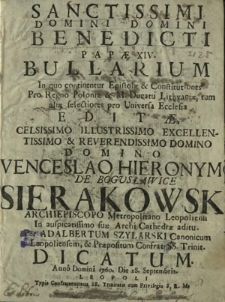 SANCTISSIMI
DOMINI DOMINI
BENEDICTI
PAPÆ XIV.
BULLARIUM
In quo continentur Epistolæ & Constitutiones
Pro Regno Poloniæ & M. Ducatu Lithvaniæ, tum
aliæ selectiores pro Universa Ecclesia
EDITÆ.
CELSISSIMO ILLUSTRISSIMO EXCELLEN-
TISSIMO & REVERENDISSIMO DOMINO
DOMINO
VENCESLAO HIERONYMO
DE BOGUSŁAWICE
SIERAKOWSKI
ARCHIEPISCOPO Metropolitano Leopoliensi
In auspicatissimo suæ Archi Cathedræ aditu.
ADALBERTUM SZYLARSKI Canonicum
Leopoliensem, & Præpositum Confrat: SS. Trinit.
DICATUM.
Anno Domini 1760. Die 28. Septembris.
LEOPOLI
Typis Confraternitatis SS. Trinitatis cum Privilegio S. R. M.